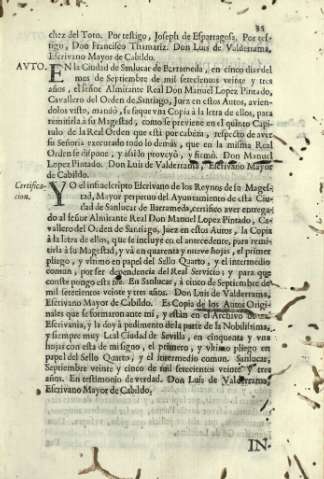 35
chez del Toro. Por testigo, Joseph de Esparragosa. Por tes-
tigo, Don Francisco Thamariz. Don Luis de Valderrama,
Escrivano Mayor de Cabildo.
AVTO. EN la Ciudad de Sanlucar de Barrameda, en cinco dias del
mes de Septiembre de mil setecientos veinte y tres
años, el señor Almirante Real Don Manuel Lopez Pintado,
Cavallero del Orden de Santiago, Juez en estos Autos, avien-
dolos visto, mandò, se saque vna Copia à la letra de ellos, para
remitirla à su Magestad, como se previene en el quinto Capi-
tulo de la Real Orden que està por cabeza, respecto de aver
su Señoria executado todo lo demàs, que en la misma Real
Orden se dispone, y assi lo proveyò, y firmò. Don Manuel
Lopez Pintado. Don Luis de Valderrama, Escrivano Mayor
de Cabildo.
Certifica-
cion.
YO el infraescripto Escrivano de los Reynos de su Mages-
tad, Mayor perpetuo del Ayuntamiento de esta Ciu-
dad de Sanlucar de Barrameda, certifico aver entrega-
do al señor Almirante Real Don Manuel Lopez Pintado, Ca-
vallero del Orden de Santiago, Juez en estos Autos, la Copia
à la letra de ellos, que se incluye en el antecedente, para remi-
tirla à su Magestad, y và en quarenta y nueve hojas, el primer
pliego, y vltimo en papel del Sello Quarto, y el intermedio
comun, por ser dependencia del Real Servicio; y para que
conste pongo esta fee. En Sanlucar, à cinco de Septiembre de
mil setecientos veinte y tres años. Don Luis de Valderrama,
Escrivano Mayor de Cabildo. Es Copia de los Autos Origi-
nales que se formaron ante mi, y estàn en el Archivo de mi
Escrivania, y la doy à pedimento de la parte de la Nobilissima,
y siempre muy Leal Ciudad de Sevilla, en cinquenta y vna
hojas con esta de mi signo, el primero, y vltimo pliego en
papel del Sello Quarto, y el intermedio comun. Sanlucar,
Septiembre veinte y cinco de mil setecientos veinte y tres
años. En testimonio de verdad. Don Luis de Valderrama,
Escrivano Mayor de Cabildo.
IN-